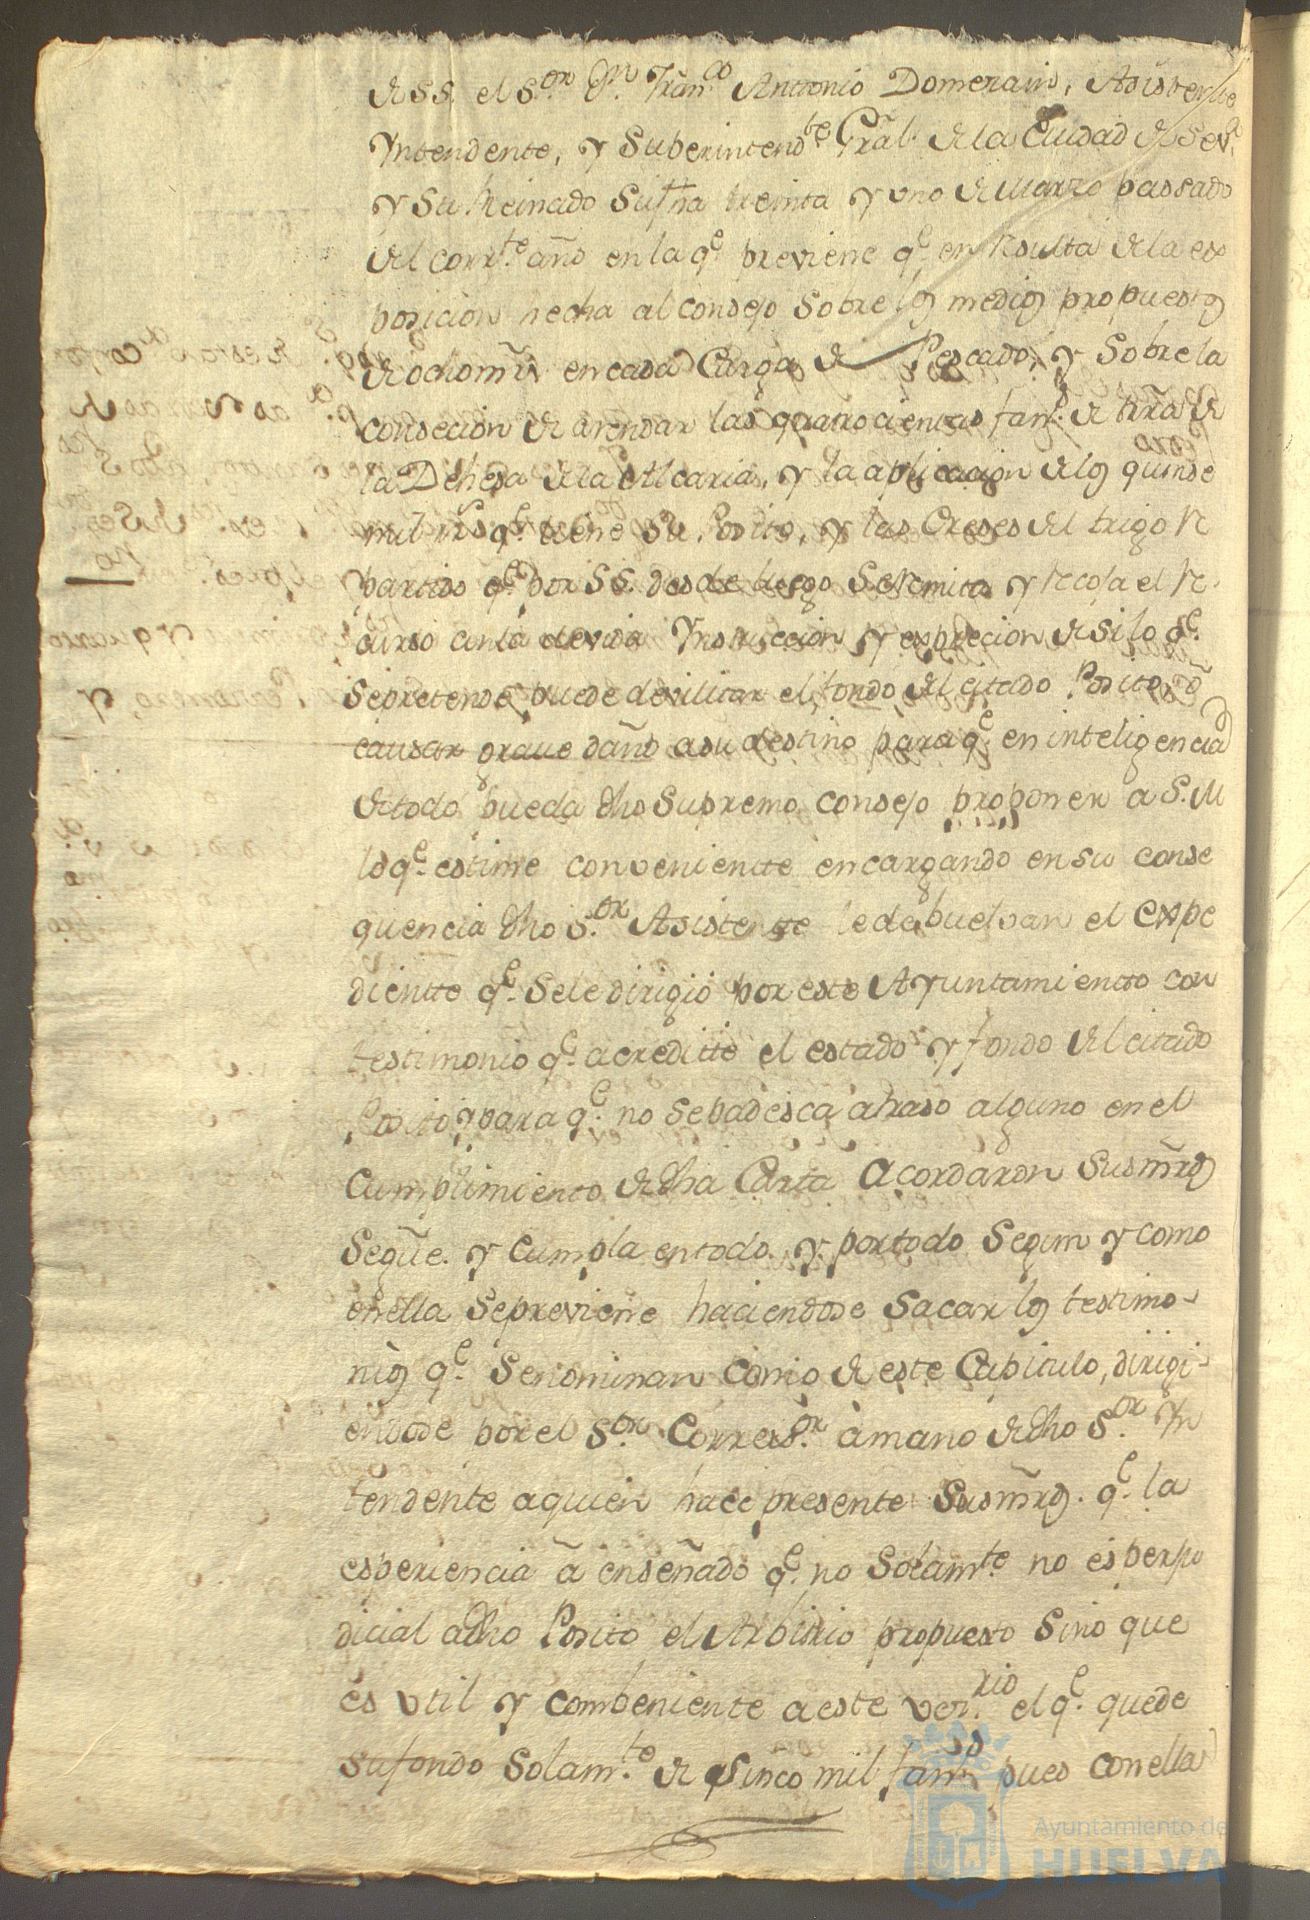 de SS. el S.or Dn. Fran.co Antonio Domezain, Asistente
Yntendente, y Superintend.te Gral. de la Ciudad de Sev.a
y su Reinado su fha treinta y uno de Marzo passado
del corr.te año en la q.e previene q.e en Resulta de la ex
posicion hecha al consejo sobre los medios propuestos
de ocho mrs. en cada Carga de Pescado, y sobre la
consecion de arendar las quatrocientas fan.s de tirra de
la Dehesa de la Alcaria, y la aplicacion de los quinse
mil rrs q.e tiene su Posito, y las Creses del trigo Re
partido q.e por SS. desde luego se Remita y Recoja el Re
curso con la devida Ynstruccion y exprecion de si lo q.e
se pretende puede devilitar el fondo del citado Posito, ó
causar grave daño a su destino para q.e en inteligencia
de todo pueda dho supremo consejo proponer a S.M
lo q.e estime conveniente encargando en su conse
quencia dho S.or Asistente le debuelvan el expe
diente q.e se le dirigió por este Ayuntamiento con
testimonio q.e acreditte el estado y fondo del citado
Posito y para q.e no se padesca atraso alguno en el
Cumplimiento de dha Carta Acordaron sus mrds
se gûe. y cumpla en todo y por todo segun y como
en ella se previene haciendose sacar los testimo-
nios q.e se nominan como de este Capitulo, dirigi-
endose por el S.or Correg.or à mano de dho S.or Yn
tendente a quien hace presente sus mrds. q.e la
esperiencia à enseñado q.e no solam.te no es perju
dicial a dho Posito el Arbitrio propuesto sino que
es vtil y combeniente a este ver.rio el q.e quede
su fondo solam.te de sinco mil fan.s pues con ellas
Ayuntamiento de
HUELVA